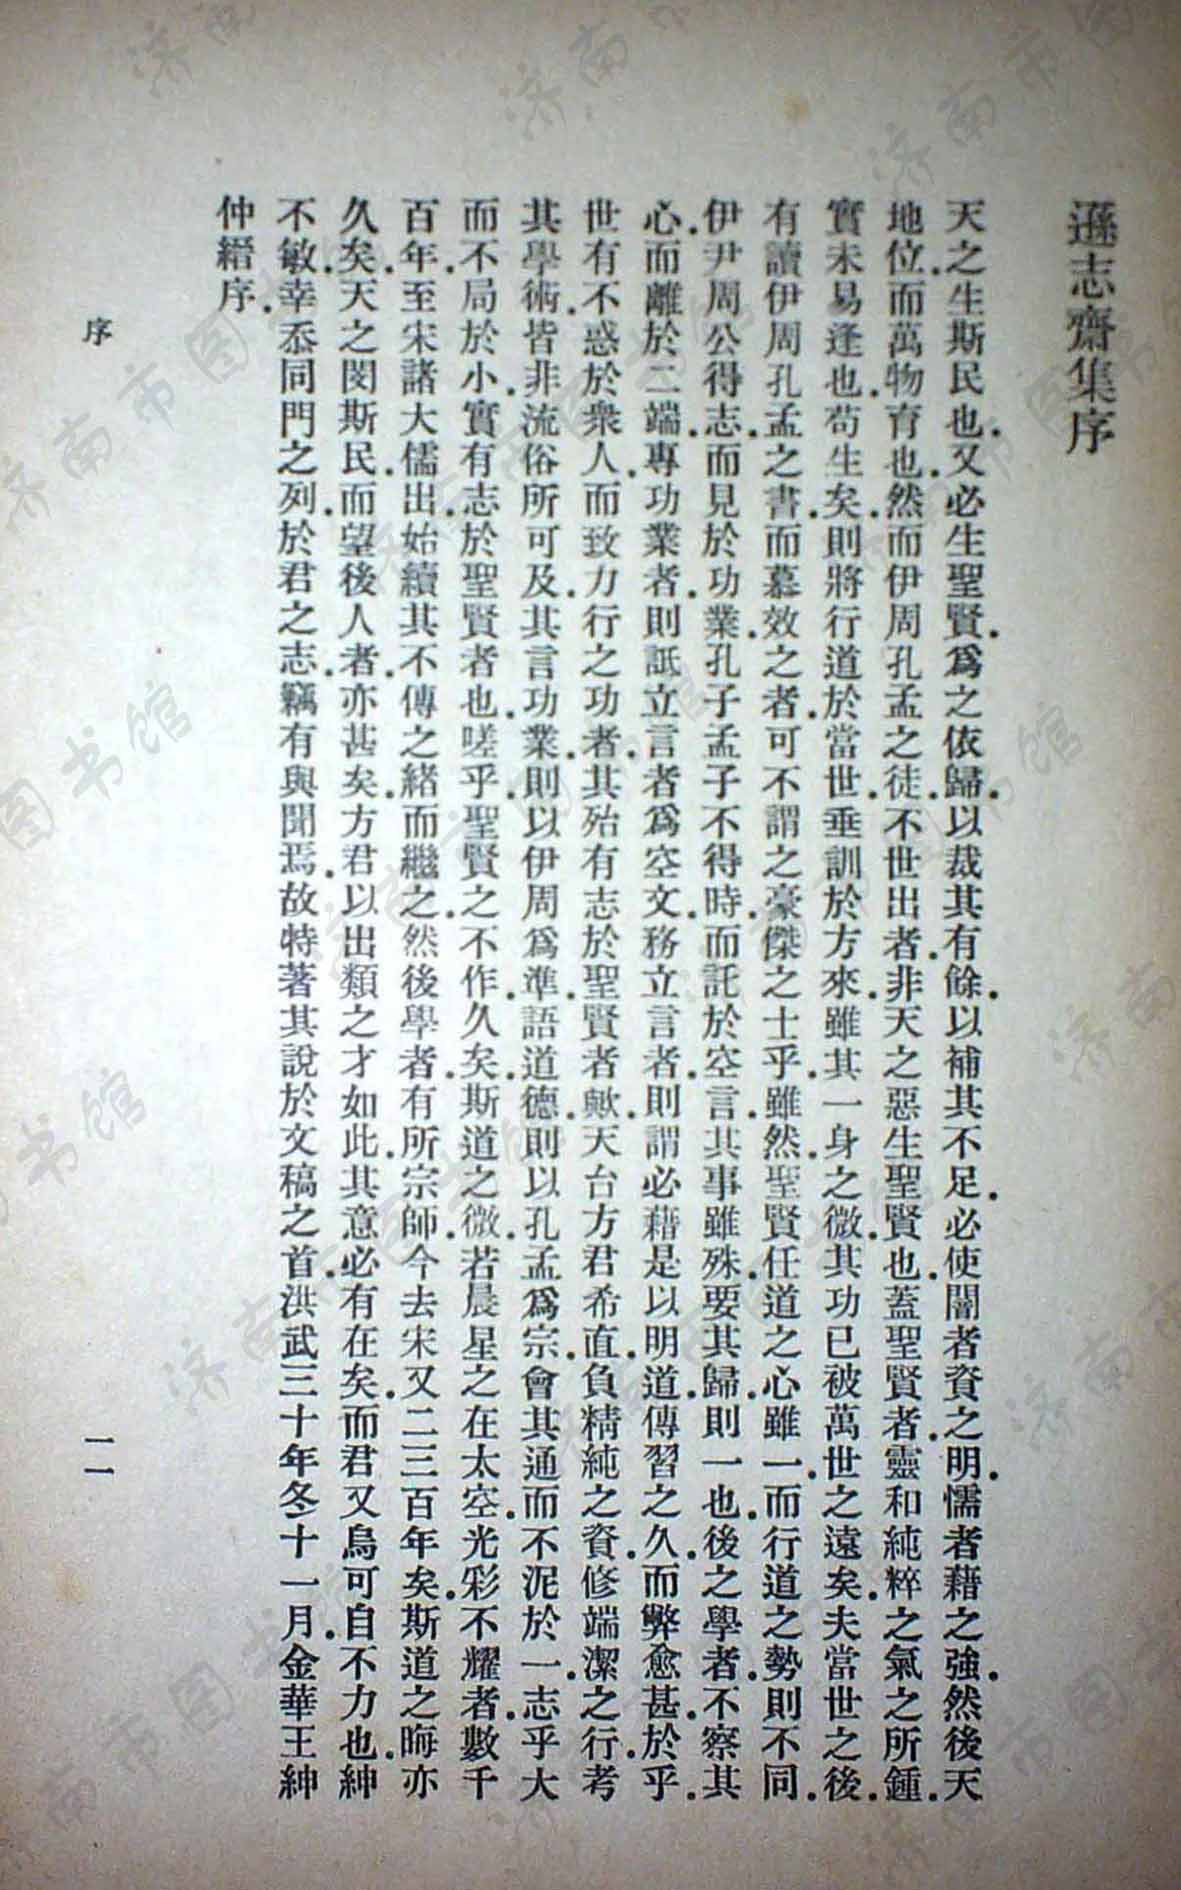 遜志齋集序
天之生斯民也又必生聖賢爲之依歸以裁其有餘以補其不足必使闇者資之明懦者藉之強然後天
地位而萬物育也然而伊周孔孟之徒不世出者非天之惡生聖賢也蓋聖賢者靈和純粹之氣之所鍾
實未易逢也苟生矣則將行道於當世垂訓於方來雖其一身之微其功已被萬世之遠矣夫當世之後
有讀伊周孔孟之書而慕效之者可不謂之豪傑之士乎雖然聖賢任道之心雖一而行道之勢則不同
伊尹周公得志而見於功業孔子孟子不得時而託於空言其事雖殊要其歸則一也後之學者不察其
心而離於二端專功業者則詆立言者爲空文務立言者則謂必藉是以明道傳習之久而弊愈甚於乎
世有不惑於衆人而致力行之功者其殆有志於聖賢者歟天台方君希直負精純之資修端潔之行考
其學術皆非流俗所可及其言功業則以伊周爲準語道德則以孔孟爲宗會其通而不泥於一志乎大
而不局於小實有志於聖賢者也嗟乎聖賢之不作久矣斯道之微若晨星之在太空光彩不耀者數千
百年至宋諸大儒出始續其不傳之緒而繼之然後學者有所宗師今去宋又二三百年矣斯道之晦亦
久矣天之閔斯民而望後人者亦甚矣方君以出類之才如此其意必有在矣而君又烏可自不力也紳
不敏幸忝同門之列於君之志竊有與聞焉故特著其說於文稿之首洪武三十年冬十一月金華王紳
仲縉序
序
一一
济南市图书馆